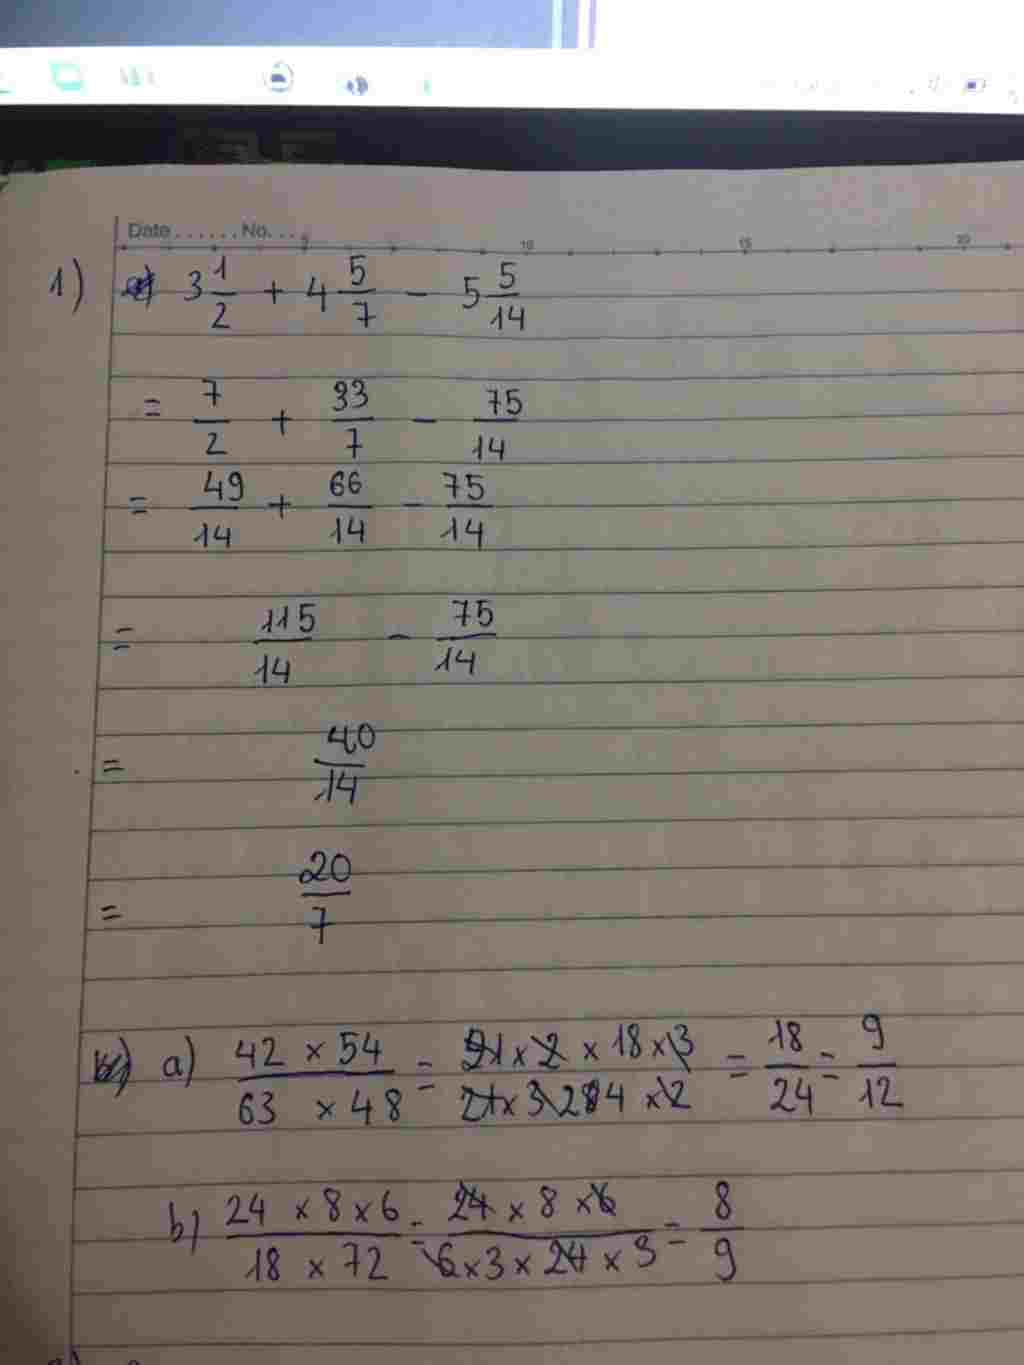 Date ...... No. ...
5 10 15 20
1) 3 1/2 + 4 5/7 - 5 5/14
= 7/2 + 33/7 - 75/14
= 49/14 + 66/14 - 75/14
= 115/14 - 75/14
= 40/14
= 20/7
a) (42 × 54)/(63 × 48) = (21 × 2 × 18 × 3)/(21 × 3 × 24 × 2) = 18/24 = 9/12
b) (24 × 8 × 6)/(18 × 72) = (24 × 8 × 6)/(6 × 3 × 24 × 3) = 8/9